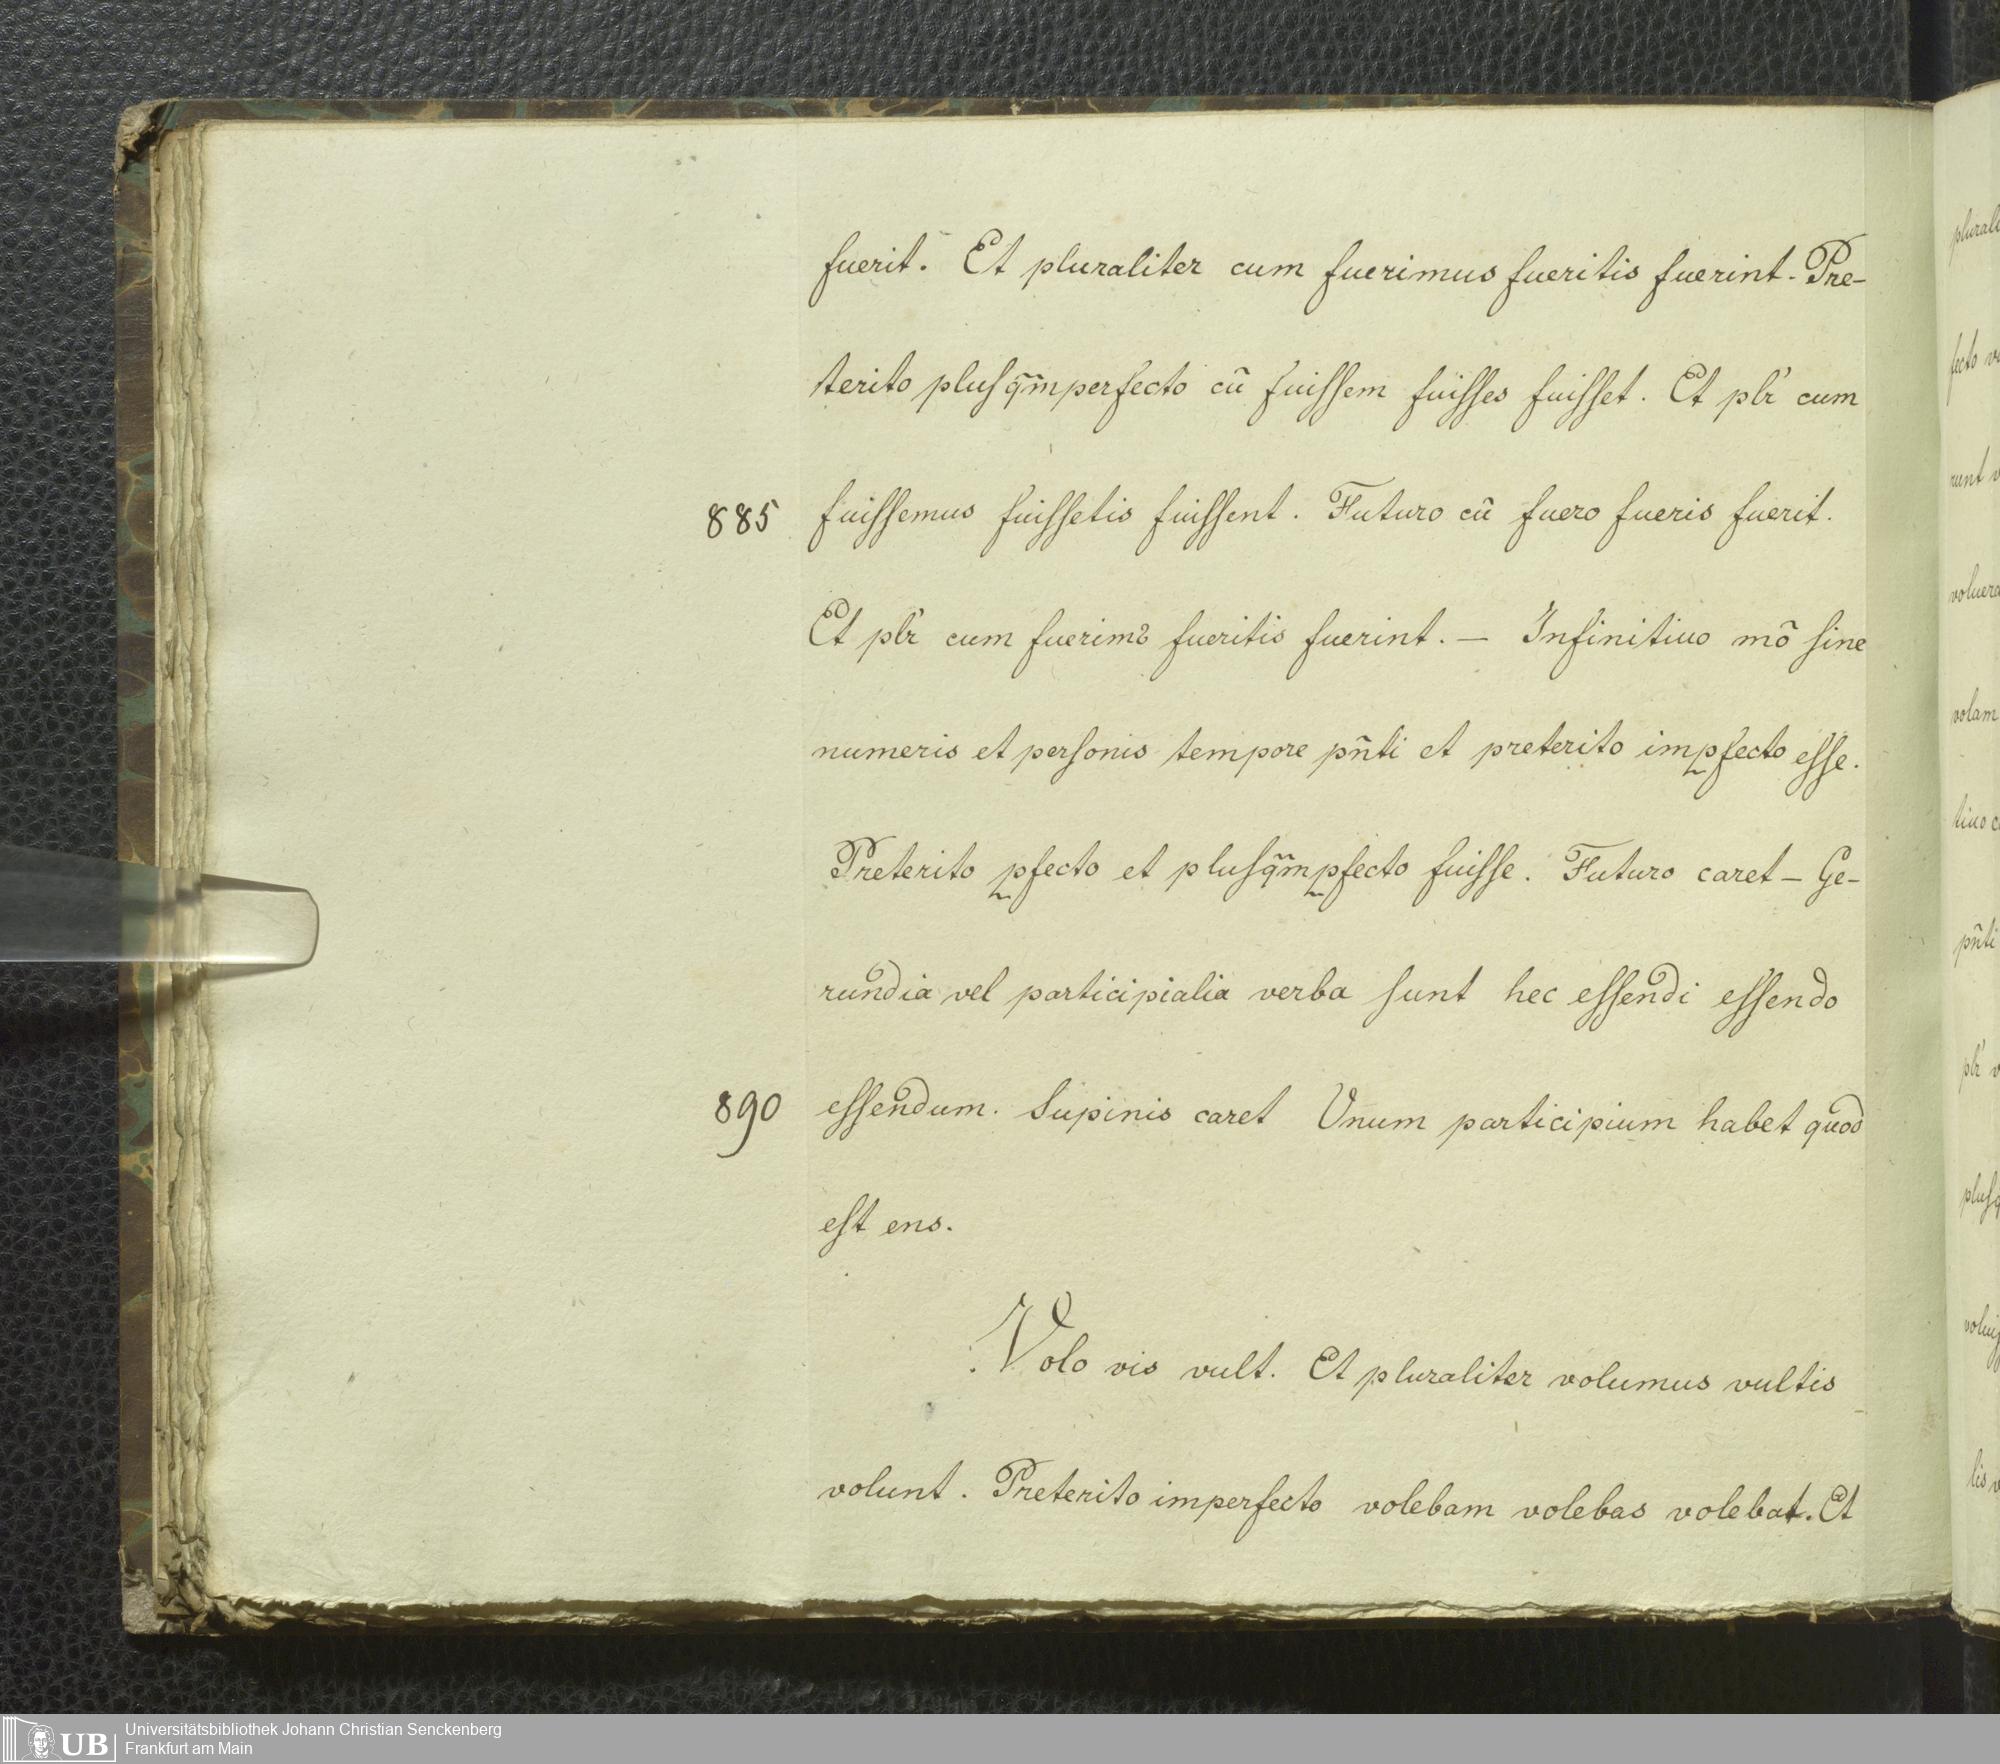 fuerit. Et pluraliter cum fuerimus fueritis fuerint. Pre-
terito pluſq̃m̃perfecto cũ fuiſſem fuiſſes fuiſſet. Et plr̃ cum
885 fuiſſemus fuiſſetis fuiſſent. Futuro cũ fuero fueris fuerit.
Et plr̃ cum fuerimꝰ fueritis fuerint. — Infinitiuo mõ ſine
numeris et perſonis tempore pñti et preterito imꝑfecto eſſe.
Preterito ꝑfecto et pluſq̃m̃ꝑfecto fuiſſe. Futuro caret — Ge-
rundia vel participialia verba ſunt hec eſſendi eſſendo
890 eſſendum. Supinis caret Vnum participium habet quod
eſt ens.
Volo vis vult. Et pluraliter volumus vultis
volunt. Preterito imperfecto volebam volebas volebat. Et
plurali
fecto
runt
volam
pñti
plr̃
Universitätsbibliothek Johann Christian Senckenberg
UB Frankfurt am Main